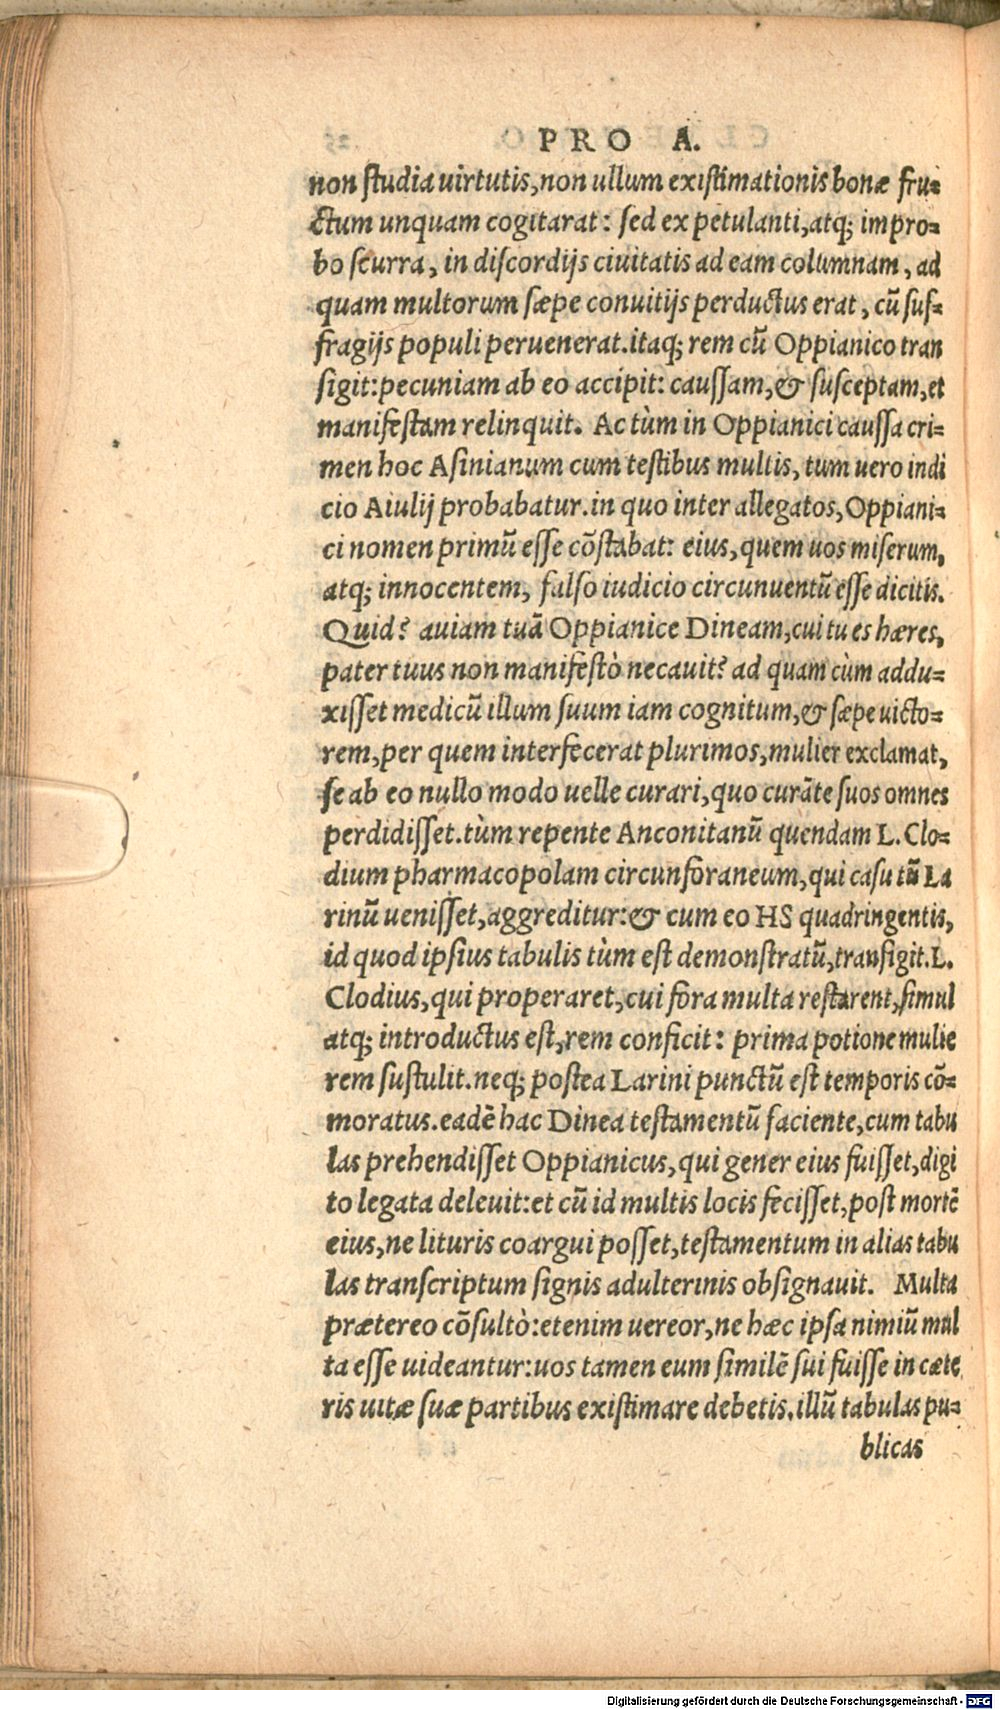 PRO A.
non studia uirtutis,non ullum existimationis bonæ fru=
ctum unquam cogitarat: sed ex petulanti,atq; impro=
bo scurra, in discordijs ciuitatis ad eam columnam, ad
quam multorum sæpe conuitijs perductus erat, cũ suf=
fragijs populi peruenerat.itaq; rem cũ Oppianico tran
sigit:pecuniam ab eo accipit: caussam,& susceptam,et
manifestam relinquit. Ac tùm in Oppianici caussa cri=
men hoc Asinianum cum testibus multis, tum uero indi
cio Aiulij probabatur.in quo inter allegatos,Oppiani=
ci nomen primũ esse cõstabat: eius,quem uos miserum,
atq; innocentem, falso iudicio circunuentũ esse dicitis.
Quid? auiam tuã Oppianice Dineam,cui tu es hæres,
pater tuus non manifestò necauit? ad quam cùm addu=
xisset medicũ illum suum iam cognitum,& sæpe uicto=
rem,per quem interfecerat plurimos,mulier exclamat,
se ab eo nullo modo uelle curari,quo curãte suos omnes
perdidisset.tùm repente Anconitanũ quendam L. Clo=
dium pharmacopolam circunforaneum,qui casu tũ La
rinũ uenisset,aggreditur:& cum eo HS quadringentis,
id quod ipsius tabulis tùm est demonstratũ,transigit.L.
Clodius,qui properaret,cui fora multa restarent,simul
atq; introductus est,rem conficit: prima potione mulie
rem sustulit.neq; postea Larini punctũ est temporis cõ=
moratus.eadẽ hac Dinea testamentũ faciente,cum tabu
las prehendisset Oppianicus,qui gener eius fuisset,digi
to legata deleuit:et cũ id multis locis fecisset,post mortẽ
eius,ne lituris coargui posset,testamentum in alias tabu
las transcriptum signis adulterinis obsignauit. Multa
prætereo cõsultò:etenim uereor,ne hæc ipsa nimiũ mul
ta esse uideantur:uos tamen eum similẽ sui fuisse in cæte
ris uitæ suæ partibus existimare debetis.illũ tabulas pu=
blicas
Digitalisierung gefördert durch die Deutsche Forschungsgemeinschaft - DFG